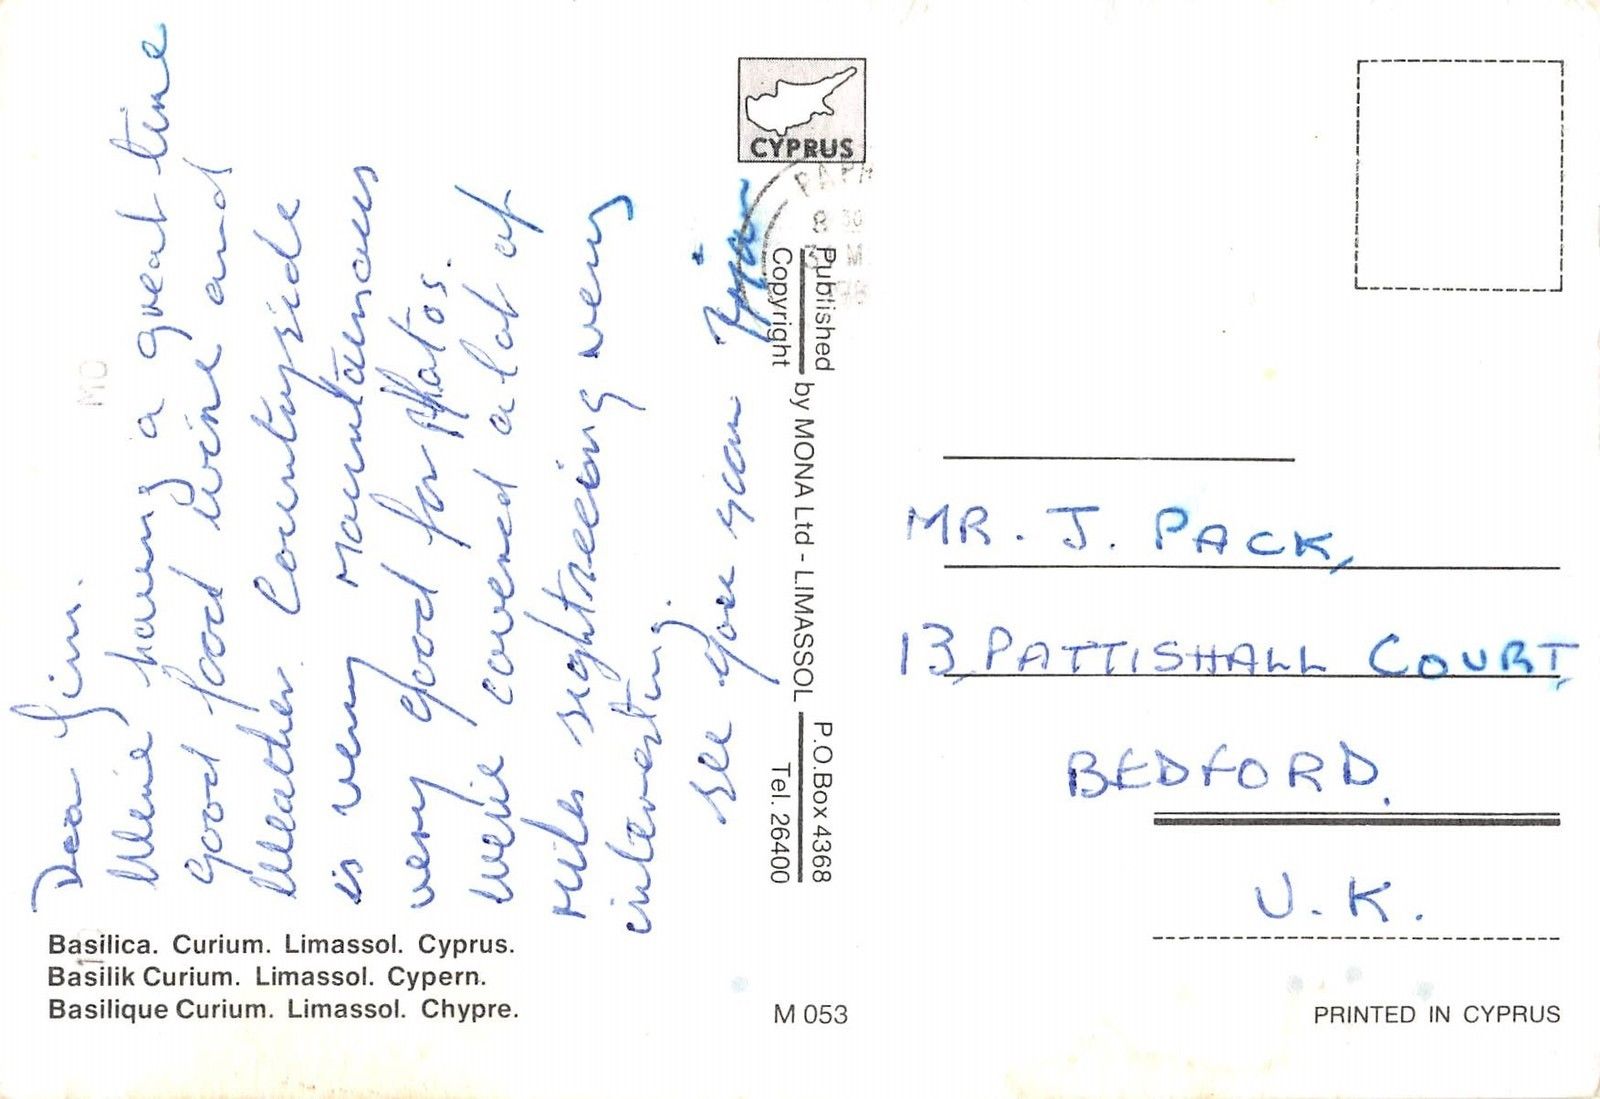 Dear Jim.
We're having a great time
good food wine and
Weather. Countryside
is very Mountanous
very good for Photos.
We've covered a lot of
Miles sightseeing very
interesting.
See you soon
CYPRUS
Published by MONA Ltd - LIMASSOL P.O.Box 4368
Copyright Tel. 26400
MR. J. PACK,
13, PATTISHALL COURT,
BEDFORD.
U.K.
Basilica. Curium. Limassol. Cyprus.
Basilik Curium. Limassol. Cypern.
Basilique Curium. Limassol. Chypre.
M 053
PRINTED IN CYPRUS